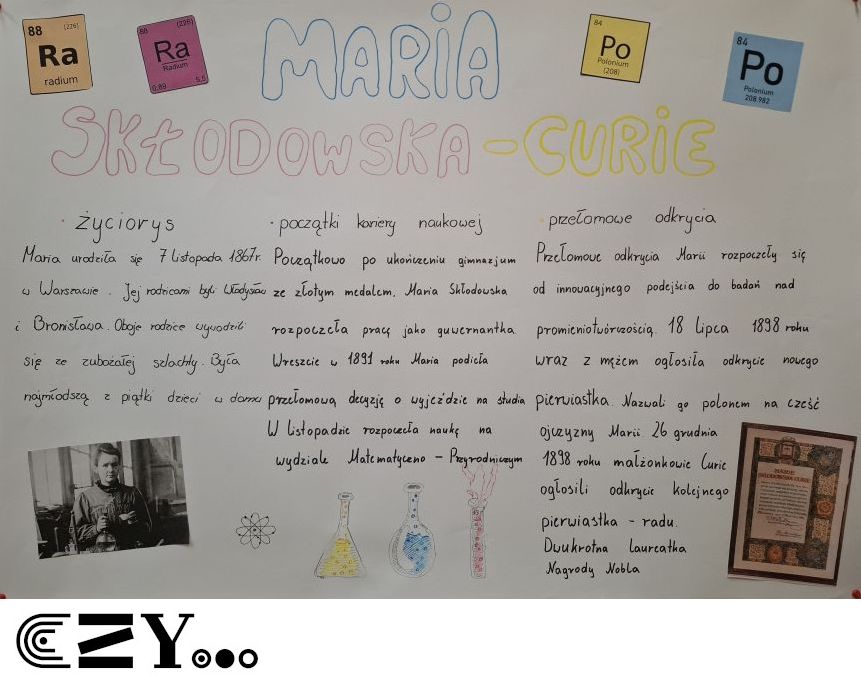 88 (226)
Ra
radium
88 (226)
Ra
Radium
0,89 5,5
MARIA
84
Po
Polonium
(208)
84
Po
Polonium
208.982
SKŁODOWSKA-CURIE
• życiorys
Maria urodziła się 7 listopada 1867r.
w Warszawie. Jej rodzicami byli Władysław
i Bronisława. Oboje rodzice wywodzili
się ze zubożałej szlachty. Była
najmłodszą z piątki dzieci w domu
• początki kariery naukowej
Początkowo po ukończeniu gimnazjum
ze złotym medalem, Maria Skłodowska
rozpoczęła pracę jako guwernantka.
Wreszcie w 1891 roku Maria podjęła
przełomową decyzję o wyjeździe na studia
W listopadzie rozpoczęła naukę na
wydziale Matematyczno - Przyrodniczym
• przełomowe odkrycia
Przełomowe odkrycia Marii rozpoczęły się
od innowacyjnego podejścia do badań nad
promieniotwórczością. 18 lipca 1898 roku
wraz z mężem ogłosiła odkrycie nowego
pierwiastka. Nazwali go polonem na cześć
ojczyzny Marii. 26 grudnia
1898 roku małżonkowie Curie
ogłosili odkrycie kolejnego
pierwiastka - radu.
Dwukrotna laureatka
Nagrody Nobla
CZY...